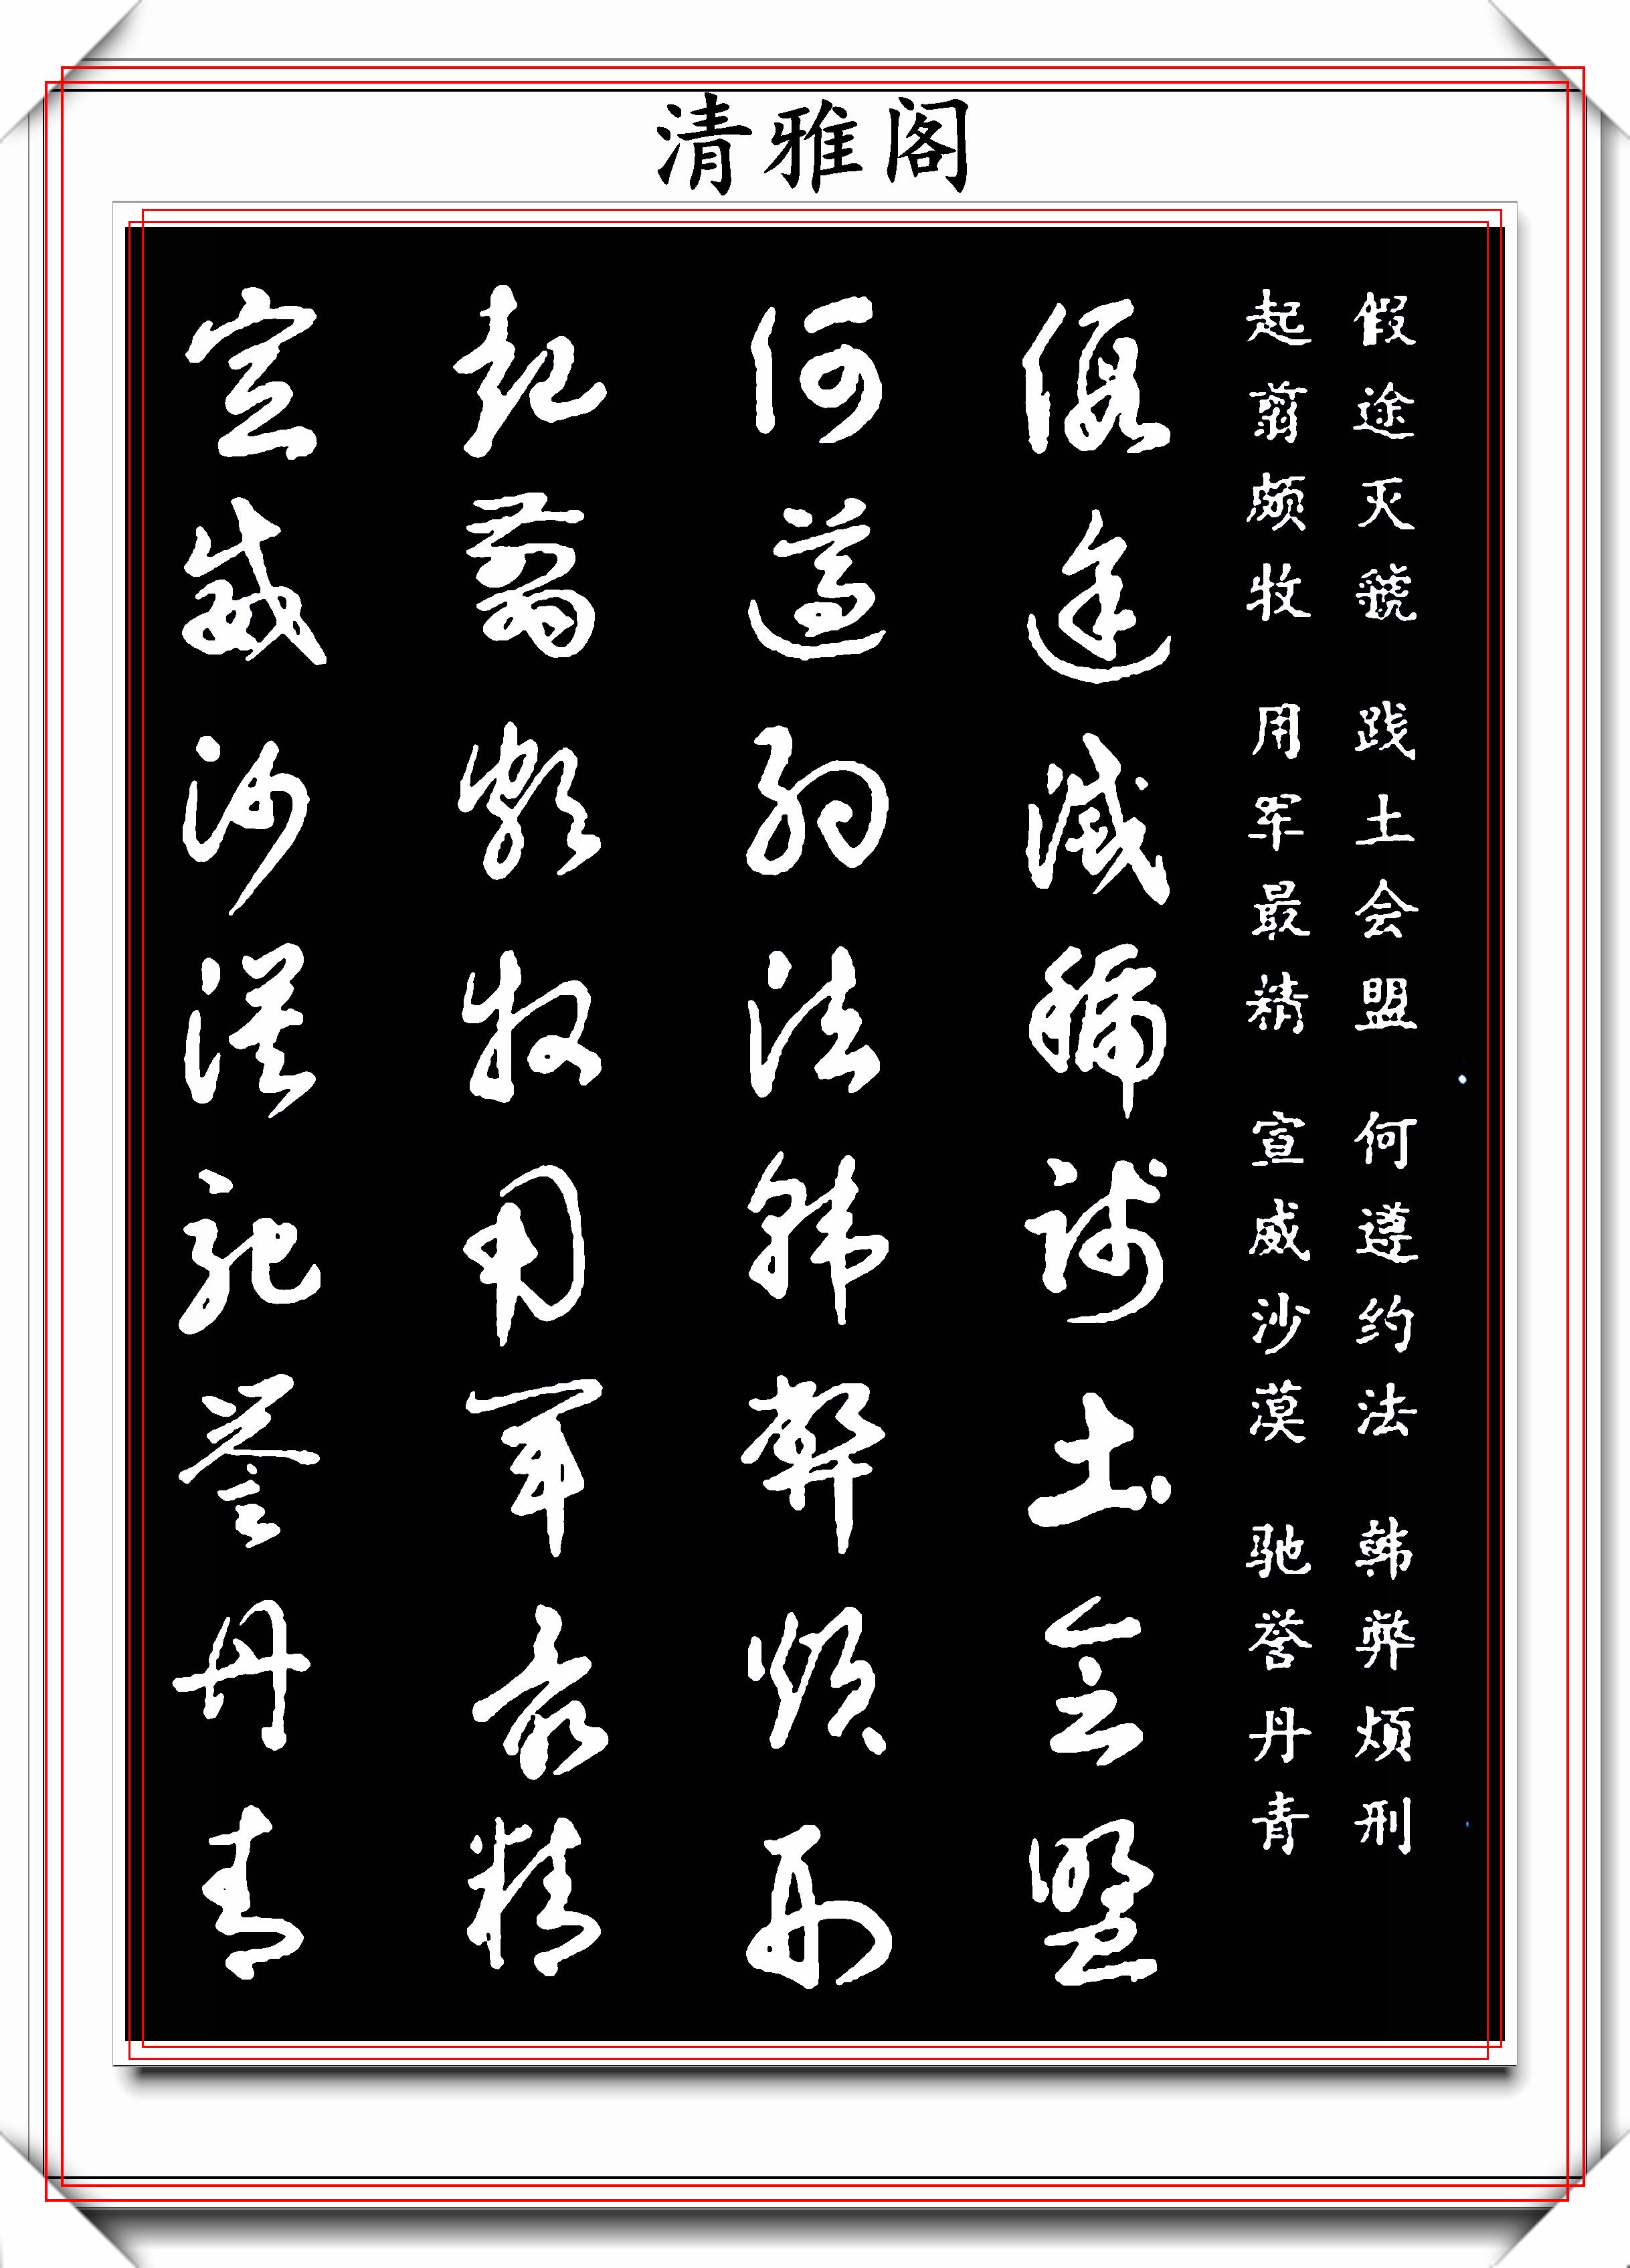 清雅阁
假途灭虢 践土会盟 何遵约法 韩弊烦刑
起翦颇牧 用军最精 宣威沙漠 驰誉丹青
假途灭虢践土会盟
何遵约法韩弊烦刑
起翦颇牧用军最精
宣威沙漠驰誉丹青